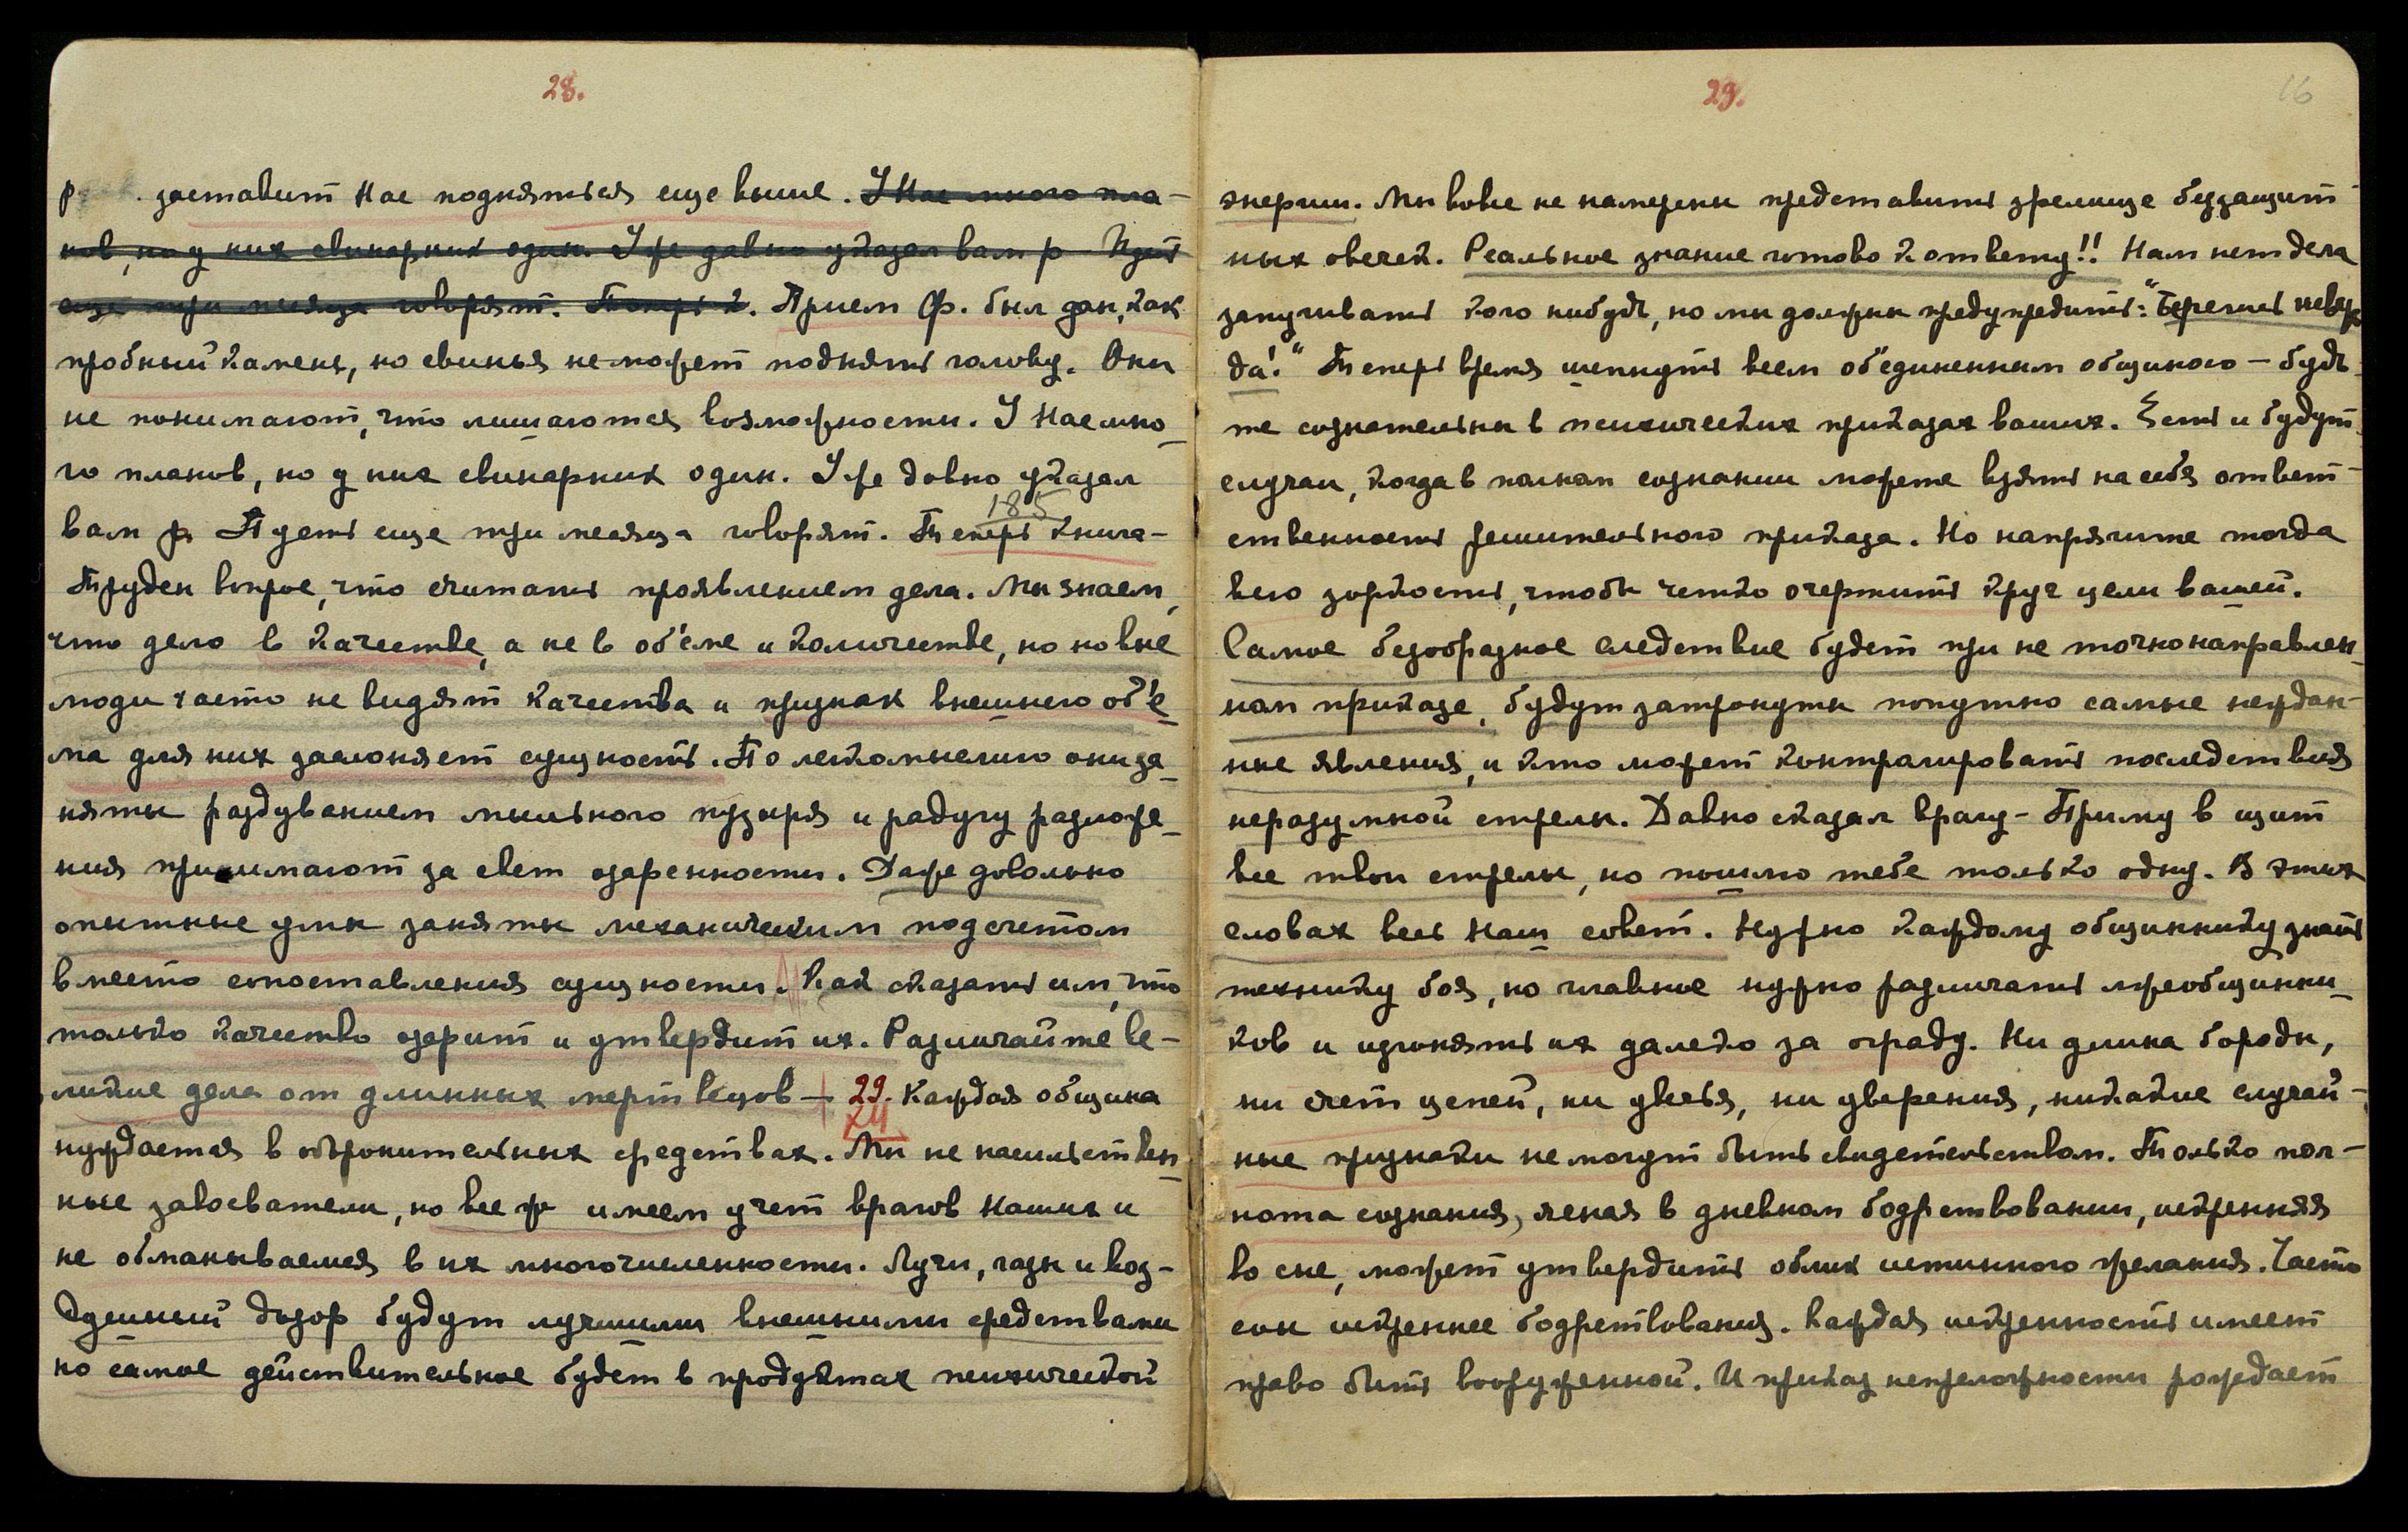 28.
р . заставит Нас подняться еще выше. У Нас много пла-
нов, но у них свинарник один. Уже давно указал вам р Идет
еще три месяца говорят. Теперь к. Прием Ф. был дан, как
пробный камень, но свинья не может поднять голову. Они
не понимают, что лишаются возможности. У Нас мно-
го планов, но у них свинарник один. Уже давно указал
185
вам р Пусть еще три месяца говорят. Теперь книга-
Труден вопрос, что считать проявлением дела. Мы знаем,
что дело в качестве, а не в об'еме и количестве, но новые
люди часто не видят качества и признак внешнего об'е-
ма для них заслоняет сущность. По легкомыслию они за-
няты раздуванием мыльного пузыря и радугу разложе-
ния принимают за свет озаренности. Даже довольно
опытные умы заняты механическим подсчетом
вместо сопоставления сущности. Как сказать им, что
только качество озарит и утвердит их. Различайте ве-
ликие дела от длинных мертвецов — 29. Каждая община
XII
нуждается в оборонительных средствах. Мы не насильствен-
ные завоеватели, но все ж имеем учет врагов Наших и
не обманываемся в их многочисленности. Лучи, газы и воз-
душный дозор будут лучшими внешними средствами
но самое действительное будет в продуктах психической
29.
16
энергии. Мы вовсе не намерены представить зрелище беззащит-
ных овечек. Реальное знание готово к ответу!! Нам нет дела
запугивать кого нибудь, но мы должны предупредить: "Берегись невеж
да!" Теперь время шепнуть всем об'единенным общиною — будь-
те сознательны в психических приказах ваших. Есть и будут
случаи, когда в полном сознании можете взять на себя ответ-
ственность решительного приказа. Но напрягите тогда
всю зоркость, чтобы четко очертить круг цели вашей.
Самое безобразное следствие будет при не точно направлен-
ном приказе, будут затронуты попутно самые нежdan-
ные явления, и кто может контролировать последствия
неразумной стрелы. Давно сказал врагу - Приму в щит
все твои стрелы, но пошлю тебе только одну. В этих
словах весь Наш совет. Нужно каждому общиннику знать
технику боя, но главное нужно различать лжеобщинни-
ков и изгонять их далеко за ограду. Ни длина бороды,
ни счет цепей, ни увечья, ни уверения, никакие случай-
ные признаки не могут быть свидетельством. Только пол-
нота сознания, ясная в дневном бодрствовании, искренняя
во сне, может утвердить облик истинного желания. Часто
сон искреннее бодрствования. Каждая искренность имеет
право быть вооруженной. И приказ непреложности рождает